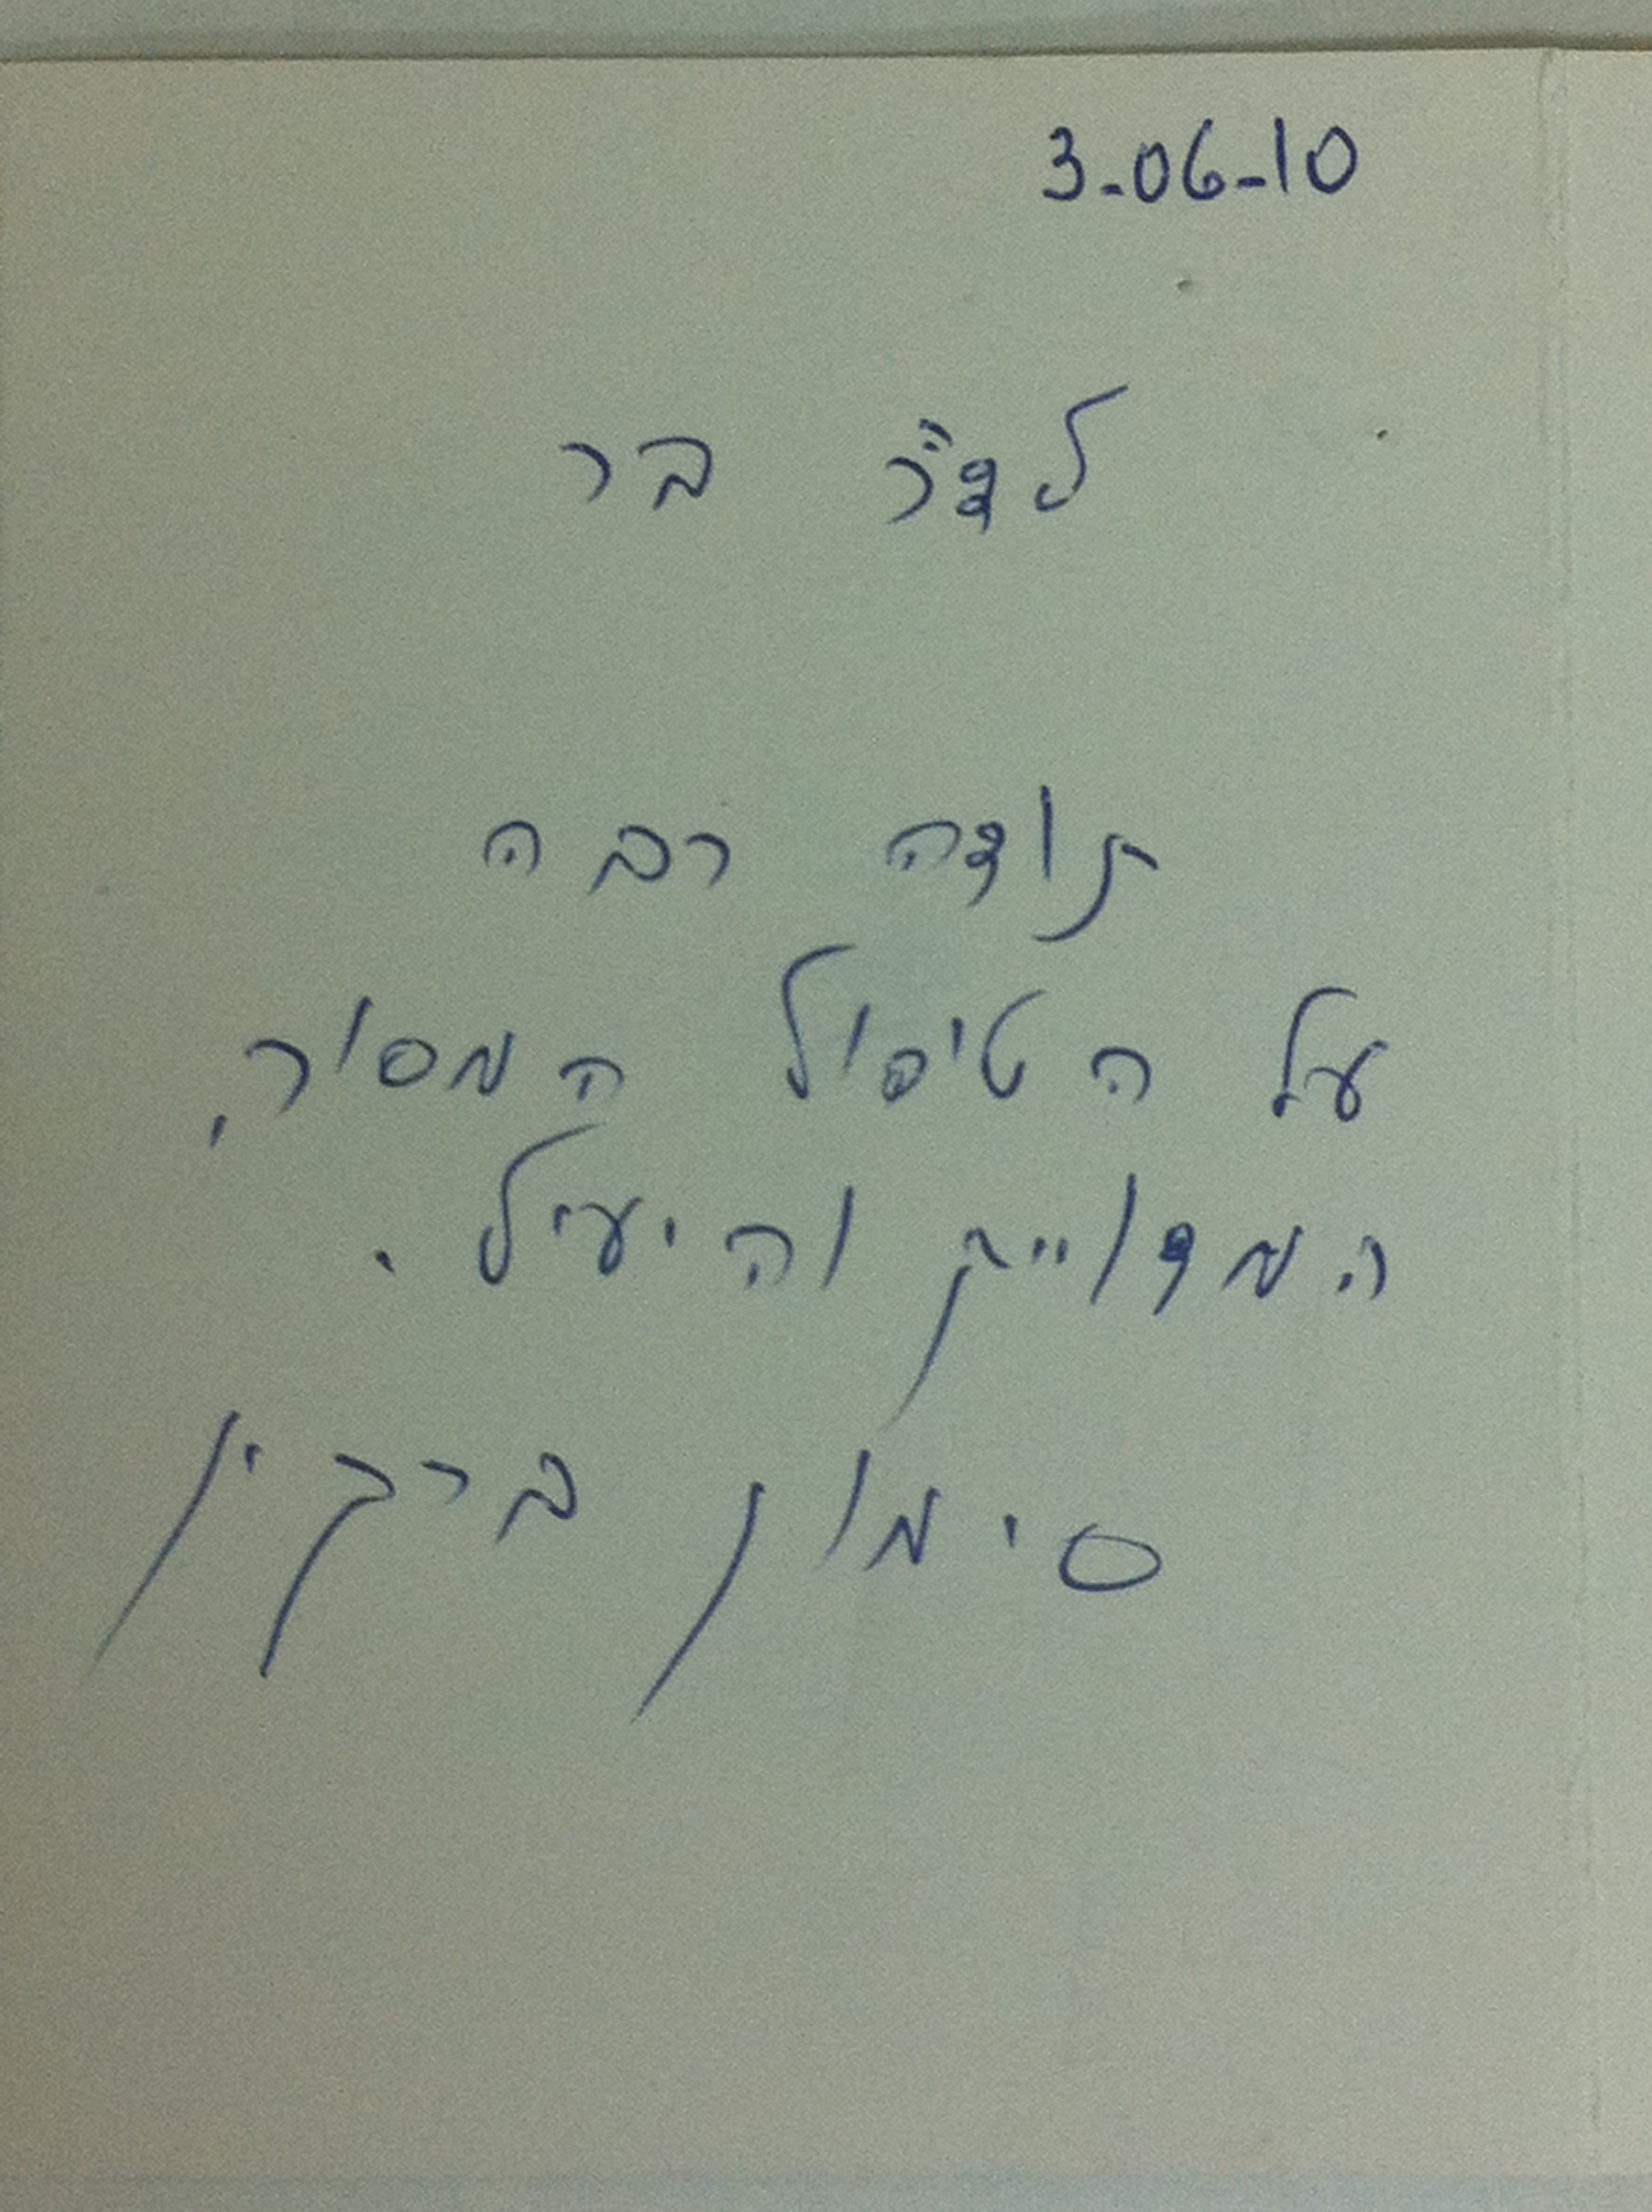 3-06-10
לד"ר בר
תודה רבה
על הטיפול המסור,
המדוייק והיעיל.
סימון ברקין